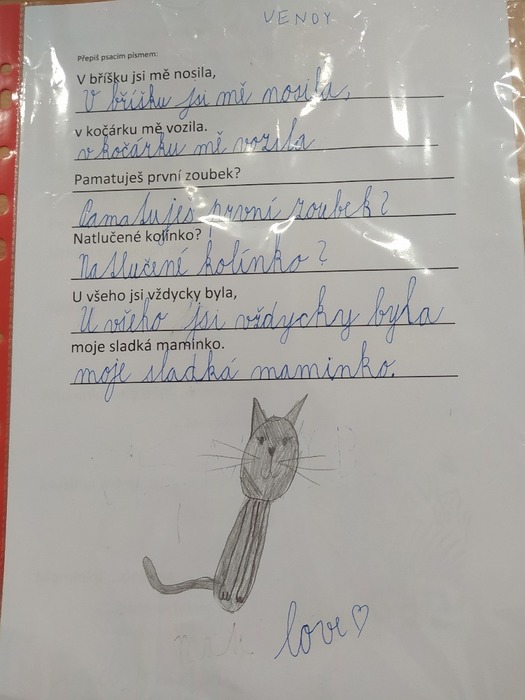 VENDY
Přepiš psacím písmem:
V bříšku jsi mě nosila,
V bříšku jsi mě nosila,
v kočárku mě vozila.
v kočárku mě vozila
Pamatuješ první zoubek?
Pamatuješ první zoubek?
Natlučené kolínko?
Natlučené kolínko?
U všeho jsi vždycky byla,
U všeho jsi vždycky byla
moje sladká maminko.
moje sladká maminko.
love♡